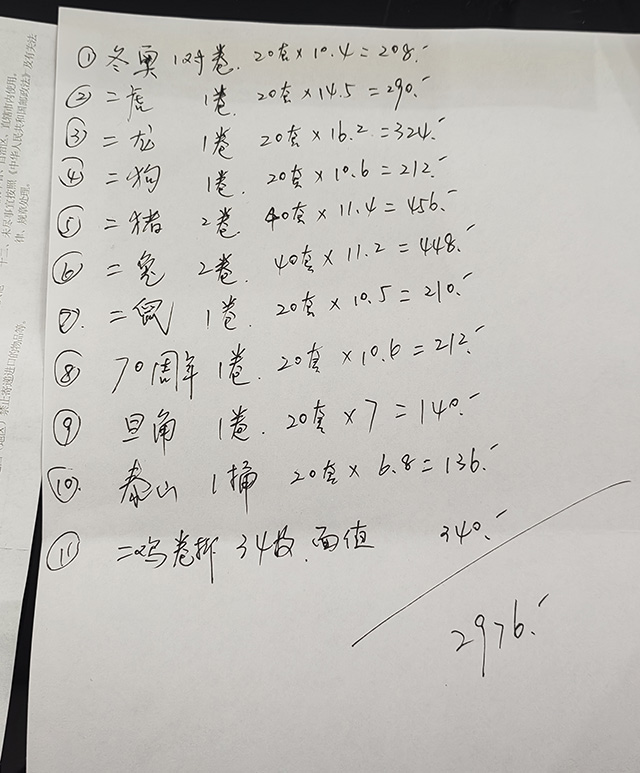 ① 冬奥 1对卷. 20套×10.4=208.-
② 二虎 1卷. 20套×14.5=290.-
③ 二龙 1卷 20套×16.2=324.-
④ 二狗 1卷. 20套×10.6=212.-
⑤ 二猪 2卷 40套×11.4=456.-
⑥ 二兔 2卷. 40套×11.2=448.-
⑦. 二鼠 1卷. 20套×10.5=210.-
⑧ 70周年 1卷. 20套×10.6=212.-
⑨ 旦角 1卷. 20套×7=140.-
⑩. 泰山 1桶 20套×6.8=136.-
⑪ 二鸡卷拆 34枚. 面值 340.-
2976.-
十二、未尽事宜按照《中华人民共和国邮政法》及有关法
律、规章处理。